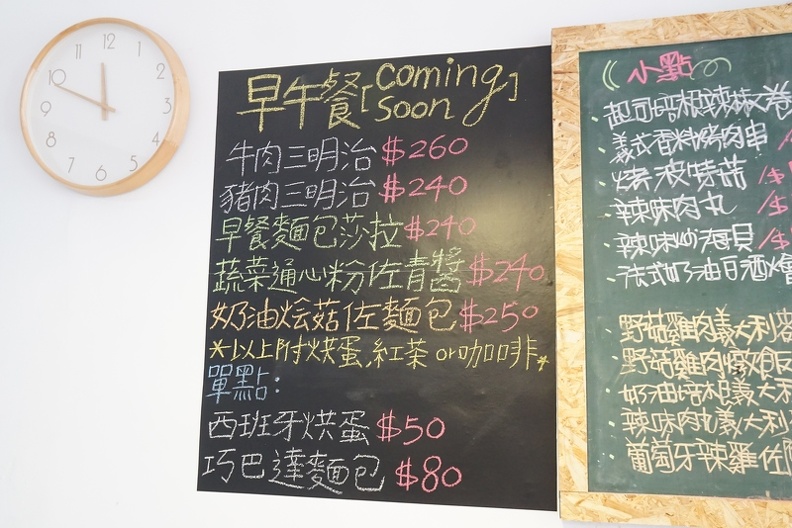 12
1
2
3
4
5
6
7
8
9
10
11
早午餐[coming soon]
牛肉三明治 $260
豬肉三明治 $240
早餐麵包莎拉 $240
蔬菜通心粉佐青醬 $240
奶油烩菇佐麵包 $250
*以上附烘蛋,紅茶 or 咖啡*
單點:
西班牙烘蛋 $50
巧巴達麵包 $80
小點
起司培根辣椒卷
義式香料烤肉串 /$
烤波特菇 /$
辣味肉丸 /$
辣味炒海貝 /$
法式奶油白酒燴
野菇雞肉義大利
野菇雞肉燉飯
奶油培根義大利
辣味肉丸義大利
葡萄牙辣雞佐